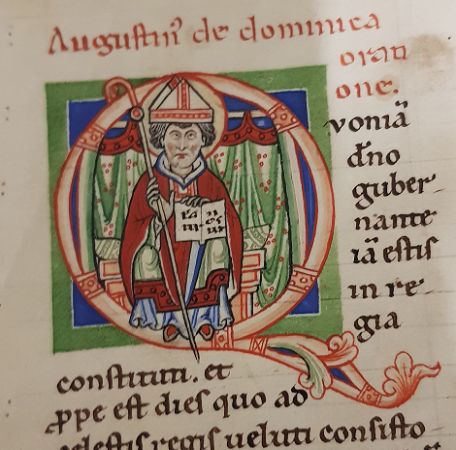 Augustin᾽ de dominica
orati
one.
Q
voniā
dn̄o
guber-
nante
iā estis
in re-
gia
constituti. et
ꝓpe est dies quo ad
celestis regis ueluti consisto-